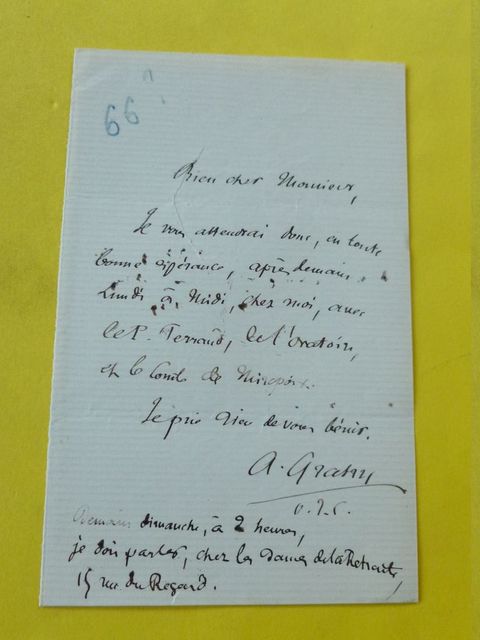 66
Bien cher Monsieur,
Je vous attendrai donc, en toute
bonne espérance, après demain
Lundi à Midi, chez moi, avec
le P. Perraud, de l'oratoire,
et le Comte de
Je prie Dieu de vous bénir.
A. Gratry
Demain dimanche, à 2 heures,
je dois parler, chez les Dames de la Retraite,
15 rue du Regard.